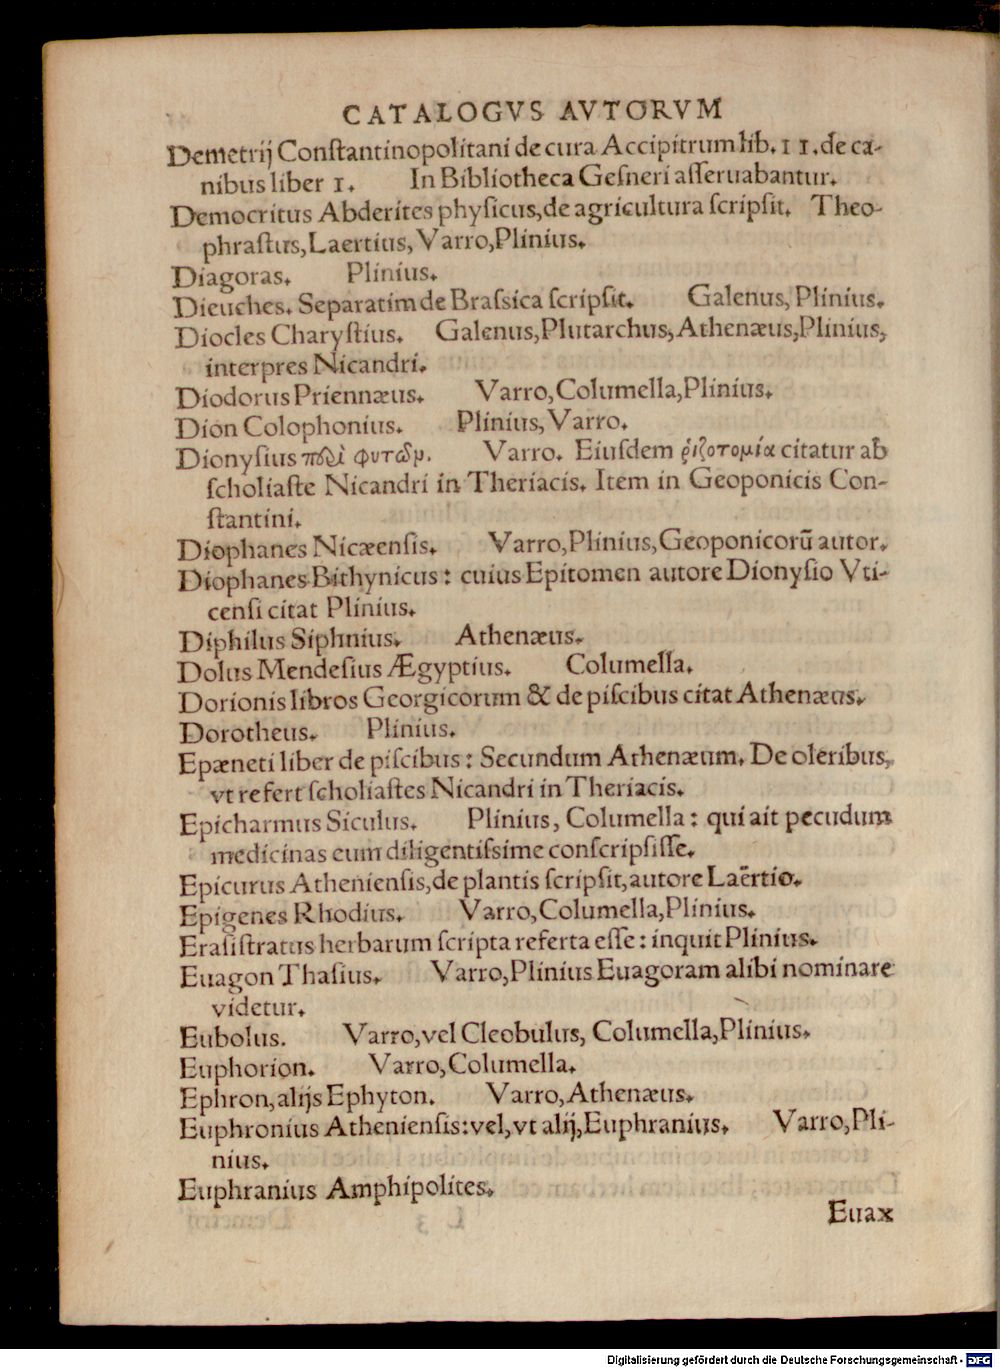 CATALOGVS AVTORVM
Demetrij Conſtantinopolitani de cura Accipitrum lib. 11. de ca-
nibus liber 1. In Bibliotheca Geſneri aſſeruabantur.
Democritus Abderites phyſicus, de agricultura ſcripſit. Theo-
phraſtus, Laertius, Varro, Plinius.
Diagoras. Plinius.
Dieuches. Separatim de Braſſica ſcripſit. Galenus, Plinius.
Diocles Charyſtius. Galenus, Plutarchus, Athenæus, Plinius,
interpres Nicandri.
Diodorus Priennæus. Varro, Columella, Plinius.
Dion Colophonius. Plinius, Varro.
Dionyſius πϵρὶ φυτῶμ. Varro. Eiuſdem ῥιζοτομία citatur ab
ſcholiaſte Nicandri in Theriacis. Item in Geoponicis Con-
ſtantini.
Diophanes Nicæenſis. Varro, Plinius, Geoponicorũ autor.
Diophanes Bithynicus: cuius Epitomen autore Dionyſio Vti-
cenſi citat Plinius.
Diphilus Siphnius. Athenæus.
Dolus Mendeſius Ægyptius. Columella.
Dorionis libros Georgicorum & de piſcibus citat Athenæus.
Dorotheus. Plinius.
Epæneti liber de piſcibus: Secundum Athenæum. De oleribus,
vt refert ſcholiaſtes Nicandri in Theriacis.
Epicharmus Siculus. Plinius, Columella: qui ait pecudum
medicinas eum diligentiſsime conſcripſiſſe.
Epicurus Athenienſis, de plantis ſcripſit, autore Laërtio.
Epigenes Rhodius. Varro, Columella, Plinius.
Eraſiſtratus herbarum ſcripta referta eſſe: inquit Plinius.
Euagon Thaſius. Varro, Plinius Euagoram alibi nominare
videtur.
Eubolus. Varro, vel Cleobulus, Columella, Plinius.
Euphorion. Varro, Columella.
Ephron, alijs Ephyton. Varro, Athenæus.
Euphronius Athenienſis: vel, vt alij, Euphranius. Varro, Pli-
nius.
Euphranius Amphipolites.
Euax
Digitalisierung gefördert durch die Deutsche Forschungsgemeinschaft - DFG